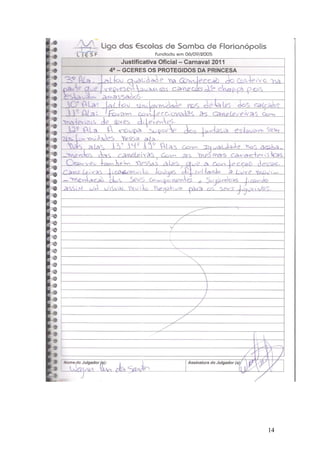 Liga das Escolas de Samba de Florianópolis
LIESF
fundada em 06/09/2005
Justificativa Oficial – Carnaval 2011
4ª – GCERES OS PROTEGIDOS DA PRINCESA
3ª Ala: faltou qualidade na confecção do costeiro na
parte que representavam os canecão de chopp pois
estavam amassados.
10ª Ala: faltou uniformidade nos detales dos calçados
11ª Ala: Foram confeccionadas as caneleiras com
materiais de cores diferentes
12ª Ala A roupa suporte das fantasia estavam sem
uniformidades nessa ala.
Nas alas 13ª 14ª 19ª Alas com igualdade nos acaba-
mentos das caneleiras, com as mesmas características
Observei também nessas alas, que a confecção desse
caneleiras ficaram muito largas dificultando a livre movim-
mentação dos seus componentes e sujeitos ficando
assim um visual muito negativo para os seus figurinos
Nome do Julgador (a):
Assinatura do Julgador (a):
14